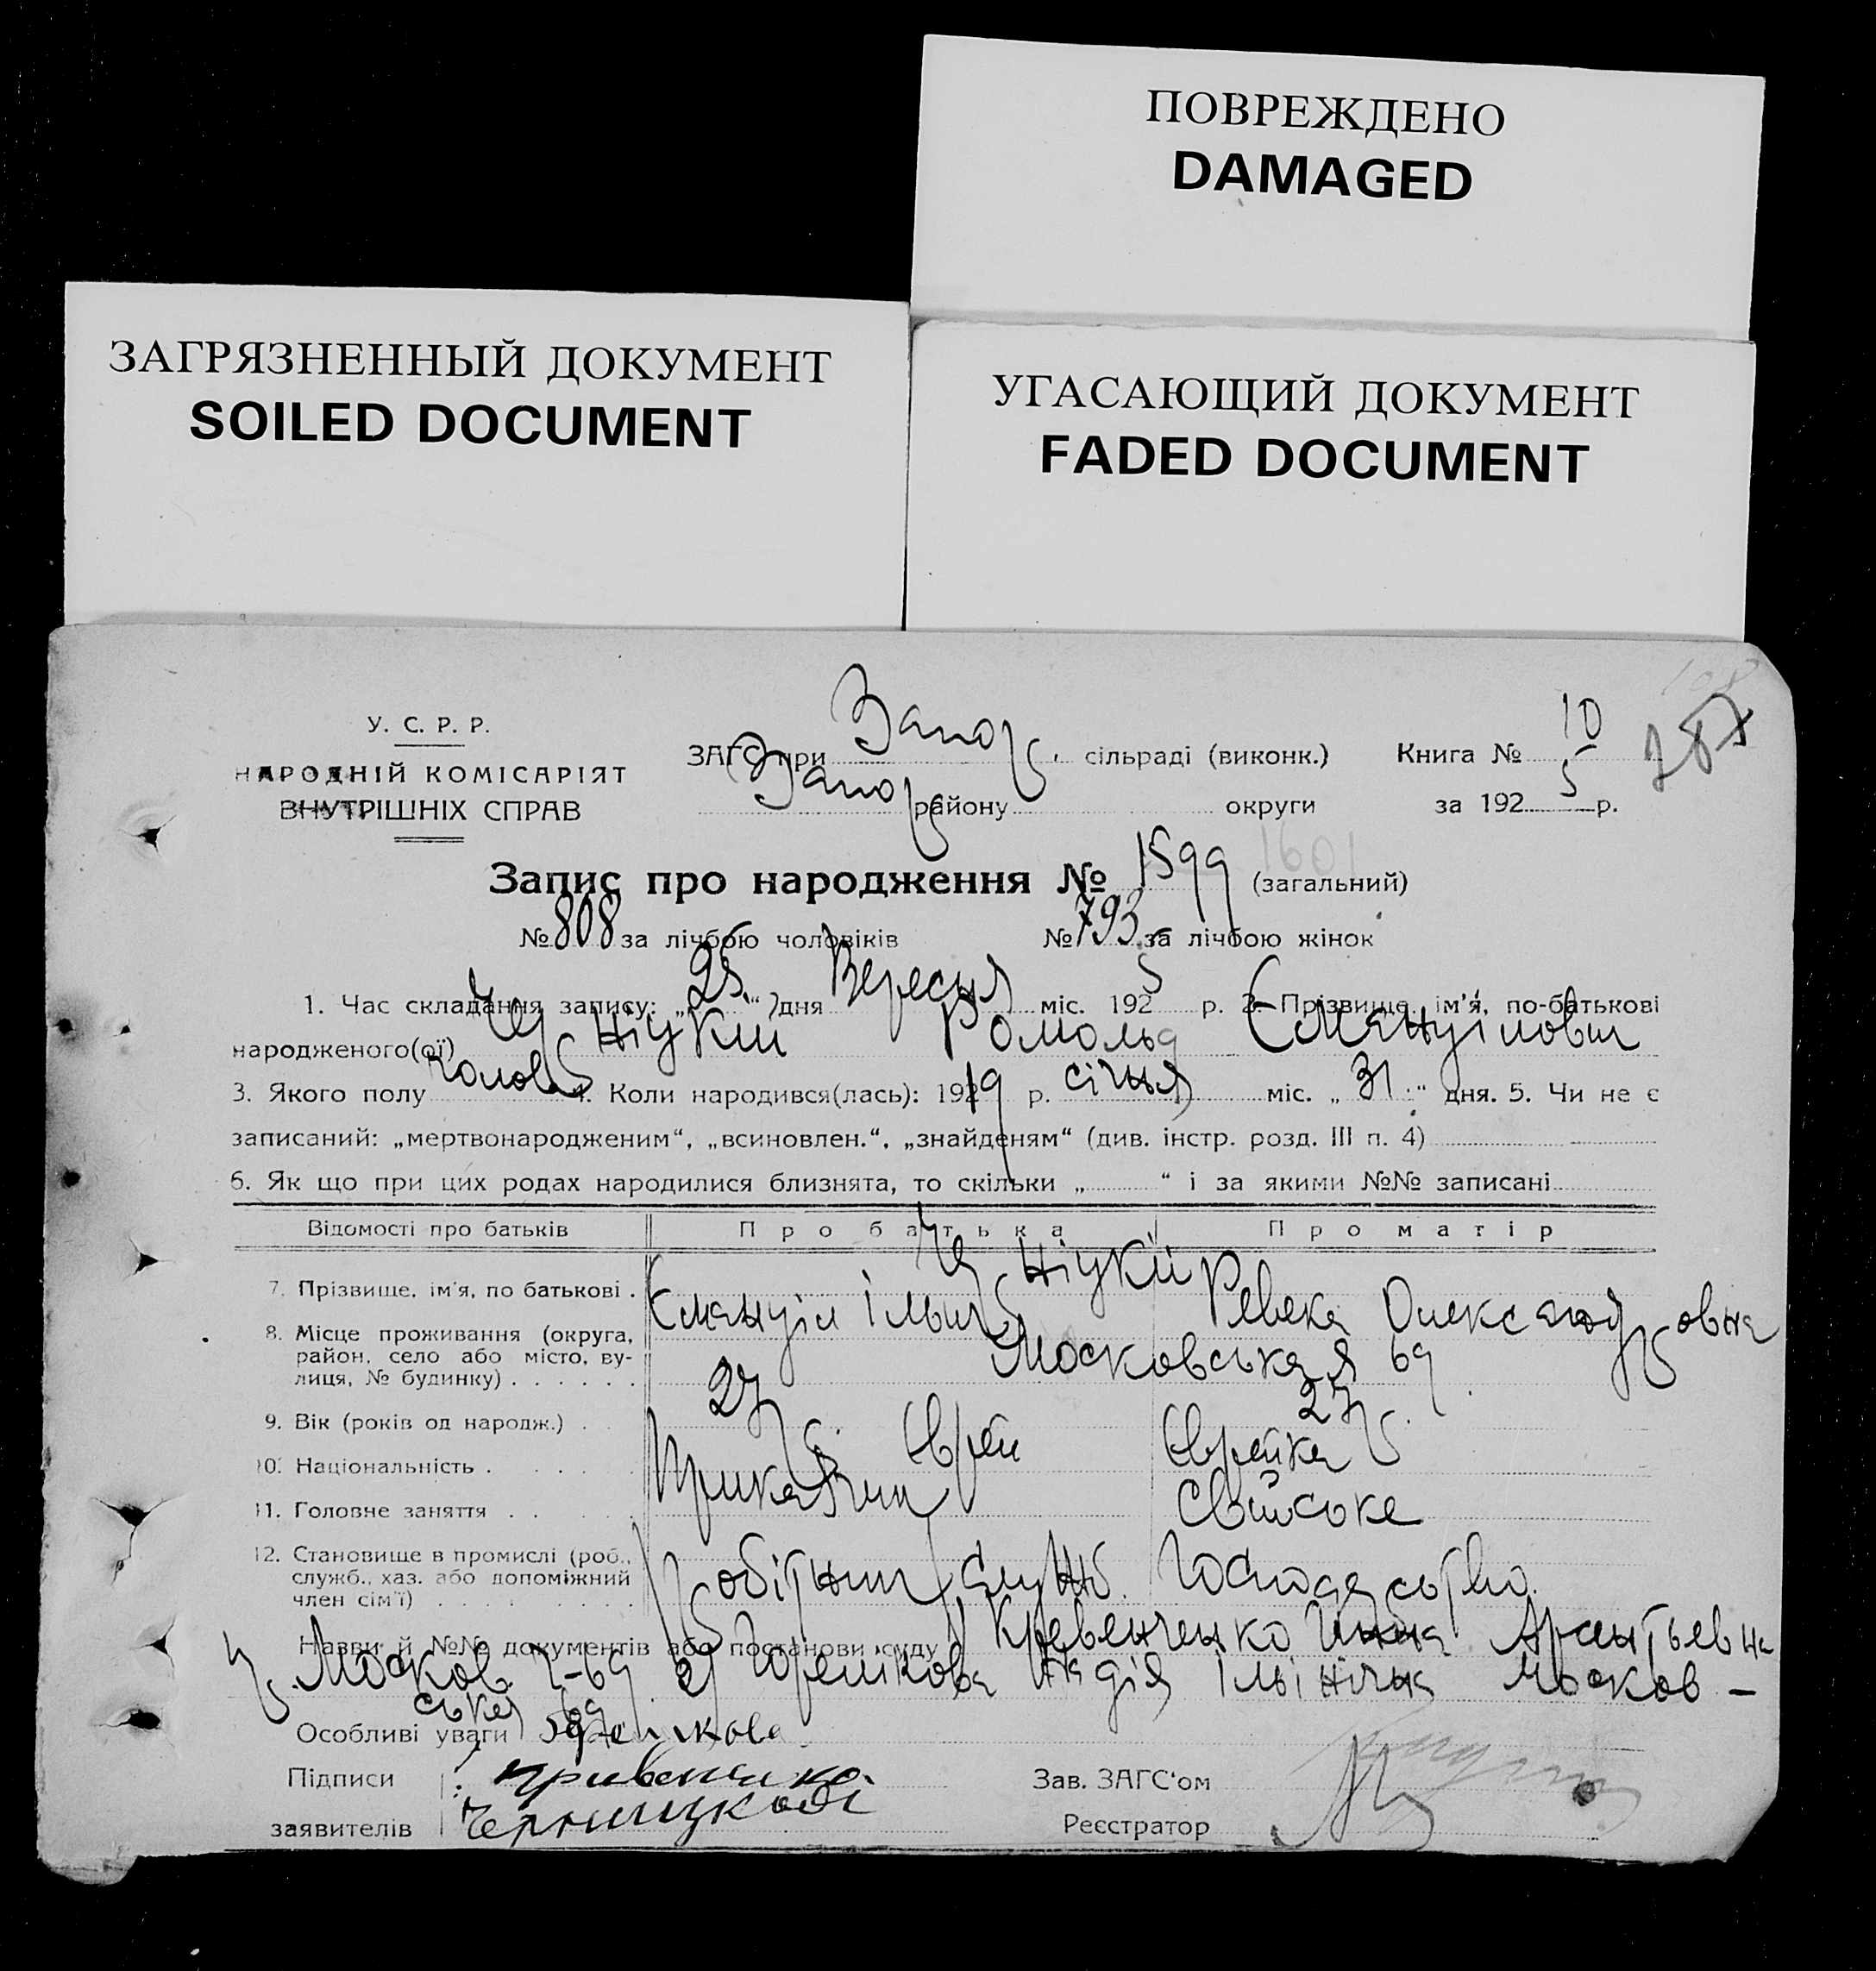 ПОВРЕЖДЕНО
DAMAGED
ЗАГРЯЗНЕННЫЙ ДОКУМЕНТ
SOILED DOCUMENT
УГАСАЮЩИЙ ДОКУМЕНТ
FADED DOCUMENT
У. С. Р. Р.
НАРОДНІЙ КОМІСАРІЯТ
ВНУТРІШНІХ СПРАВ
ЗАГС при Запор. сільраді (виконк.) Книга № 10
Запор району округи за 1925 р.
Запис про народження № 1599 1601 (загальний)
№ 808 за лічбою чоловіків № 793 за лічбою жінок
1. Час складання запису: „25“ дня Вересня міс. 1925 р. 2. Прізвище, ім'я, по-батькові
народженого(ої) Черніцкий Ромольд Емануілович
3. Якого полу чолов 4. Коли народився(лась): 19219 р. січня міс. „31“ дня. 5. Чи не є
записаний: „мертвонародженим“, „всиновлен.“, „знайденям“ (див. інстр. розд. III п. 4)
6. Як що при цих родах народилися близнята, то скільки „ “ і за якими №№ записані
Відомості про батьків Про батька Про матір
7. Прізвище, ім'я, по батькові . Черніцкий
Емануіл Ільич Ревека Олександровна
8. Місце проживання (округа,
район, село або місто, ву-
лиця, № будинку) . . . . . . Московська 69
9. Вік (років од народж.) . 27 27
10. Національність . Єврей Єврейка
11. Головне заняття . . Приказчик Свійське
12. Становище в промислі (роб.,
служб., хаз. або допоміжний
член сім'ї) . . . . робітник служб. Господарство
Назви й №№ документів або постанови суду Кревенченко
Москов. 69 2) Горешкова Надія Ільінічна Москов-
ська 69
Особливі уваги
Підписи
заявителів
Черницкой
Зав. ЗАГС'ом
Реєстратор